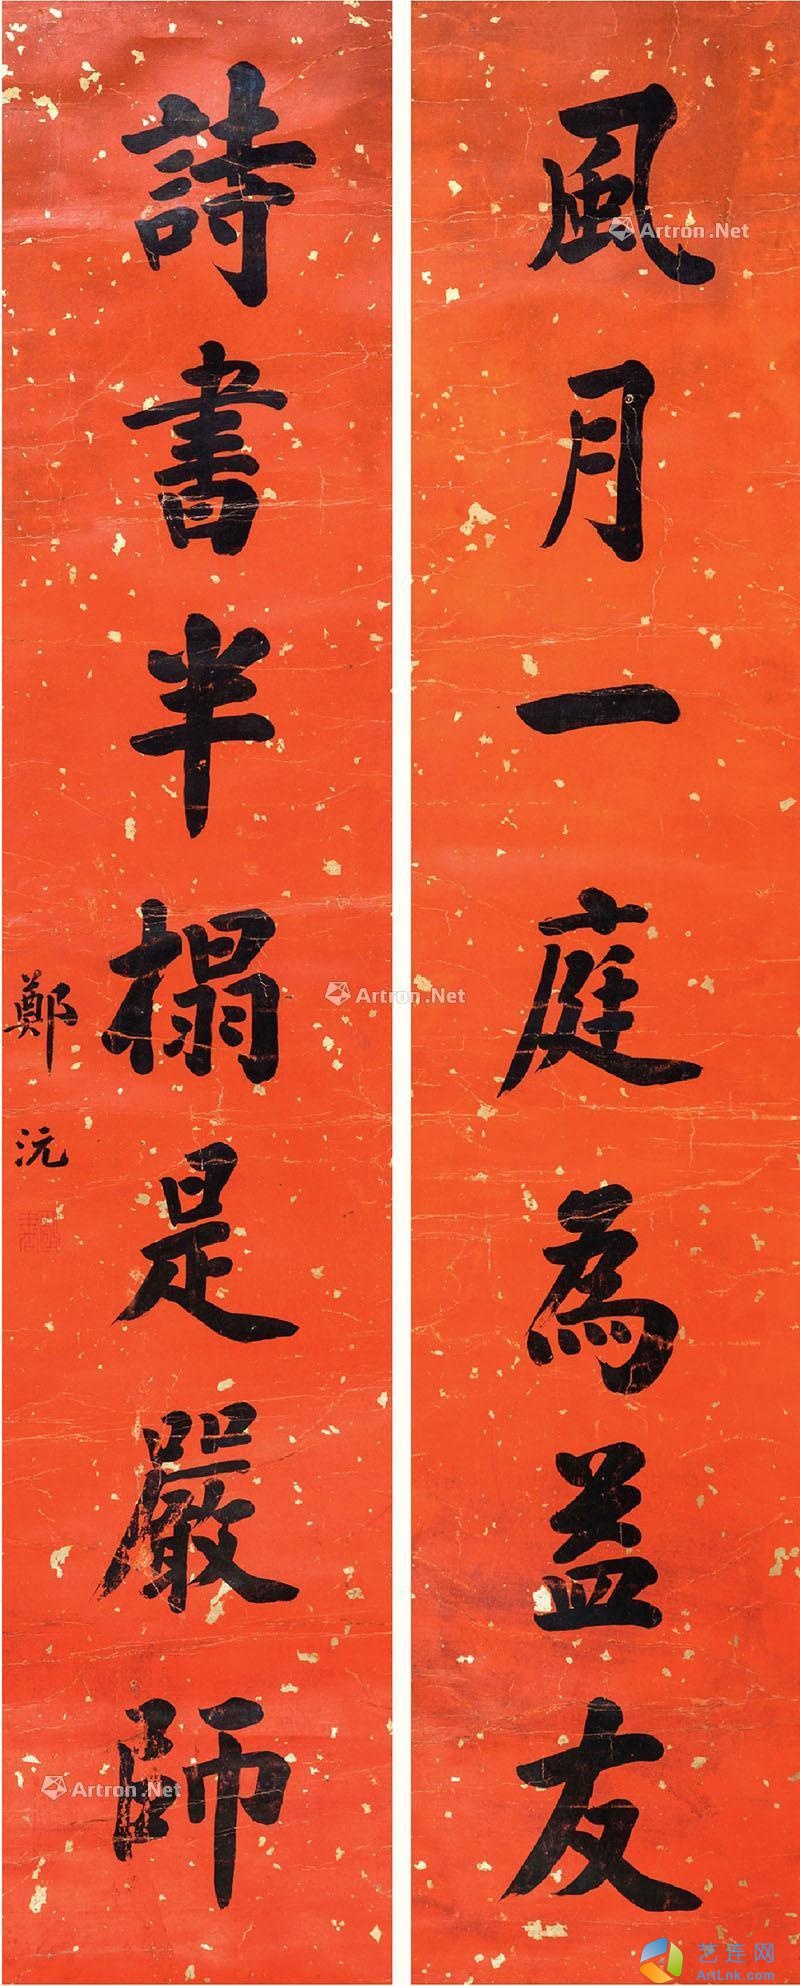 風月一庭為益友
詩書半榻是嚴師
鄭沅
Artron.Net
Artron.Net
Artron.Net
艺连网
ArtLnk.com